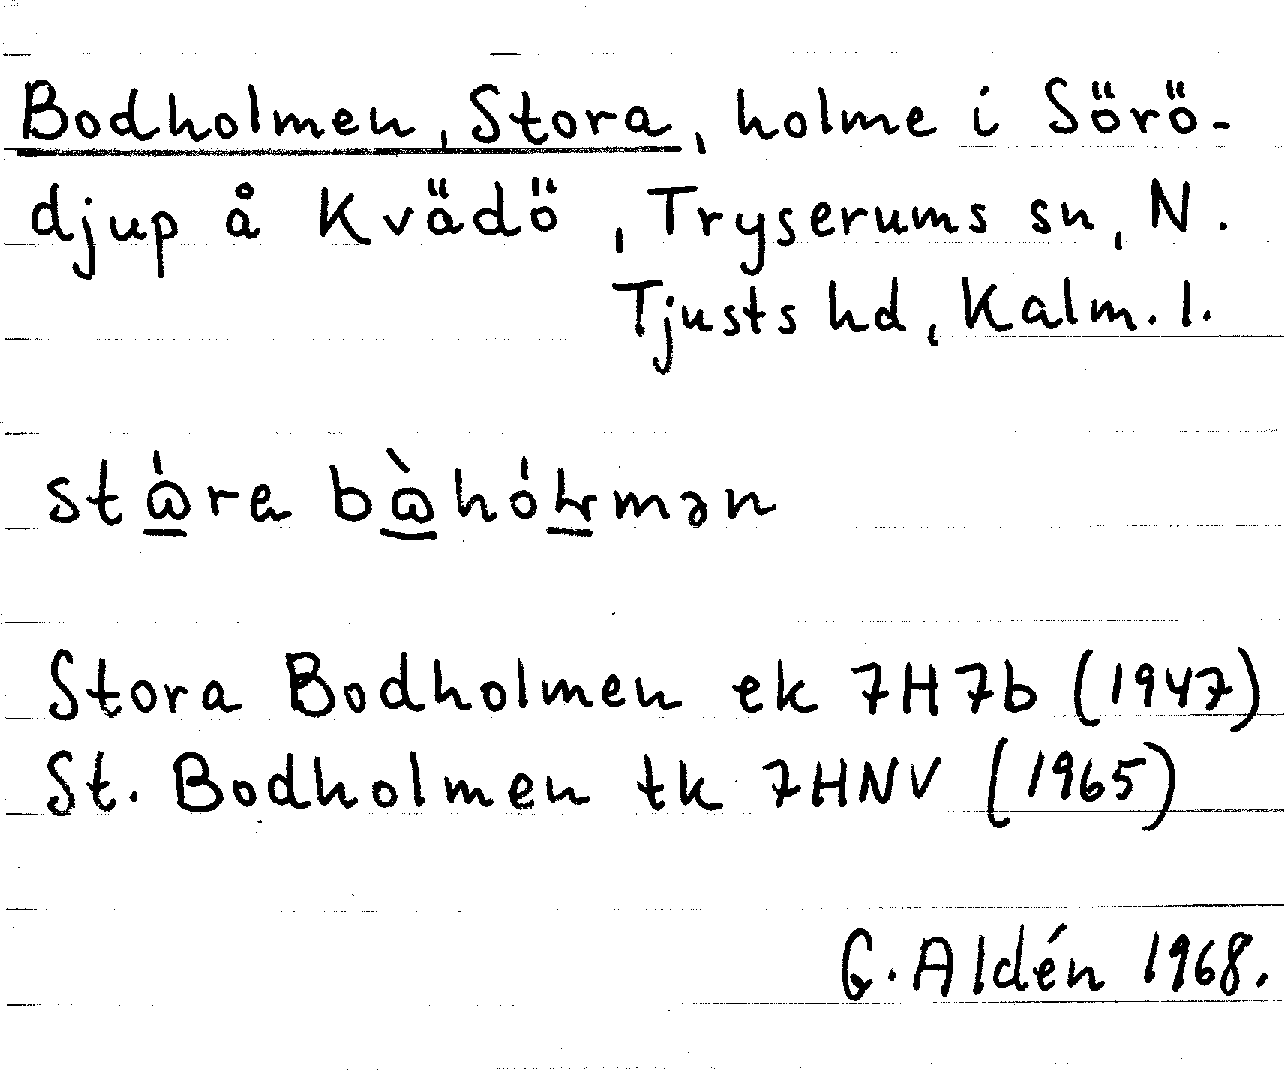 Bodholmen, Stora, holme i Sörö-
djup å Kvädö, Tryserums sn, N.
Tjusts hd, Kalm. l.
Stora Bodholmen ek 7H7b (1947)
St. Bodholmen tk 7HNV (1965)
G. Aldén 1968.